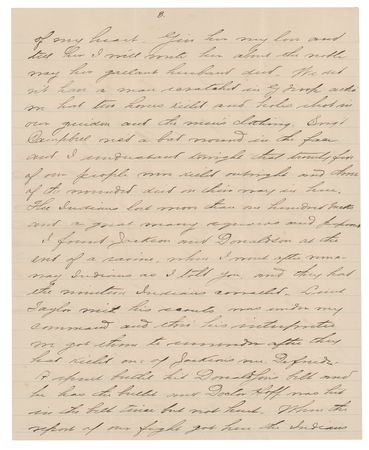 8.
of my heart. Give her my love and
tell her I will write her about the noble
way her gallant husband died. We did
n't have a man scratched in G troop altho
we had two horses killed and holes shot in
our guidon and the men's clothing. Sergt
Campbell got a bad wound in the face
and I understand tonight that twenty five
of our people were killed outright and three
of the wounded died on their way in here.
The Indians lost more than one hundred bucks
and a great many squaws and
I found Jackson and Donaldson at the
end of a ravine when I went after
way Indians as I told you, and they had
the nineteen Indians corralled. Lieut
Taylor with his scouts was under my
command and thro' his interpreter
we got them to surrender after they
had killed one of Jackson's men
A spent bullet hit Donaldson's belt and
he has the bullet and Doctor Hoff was hit
in the belt twice but not hurt. When the
report of our fight got here the Indians